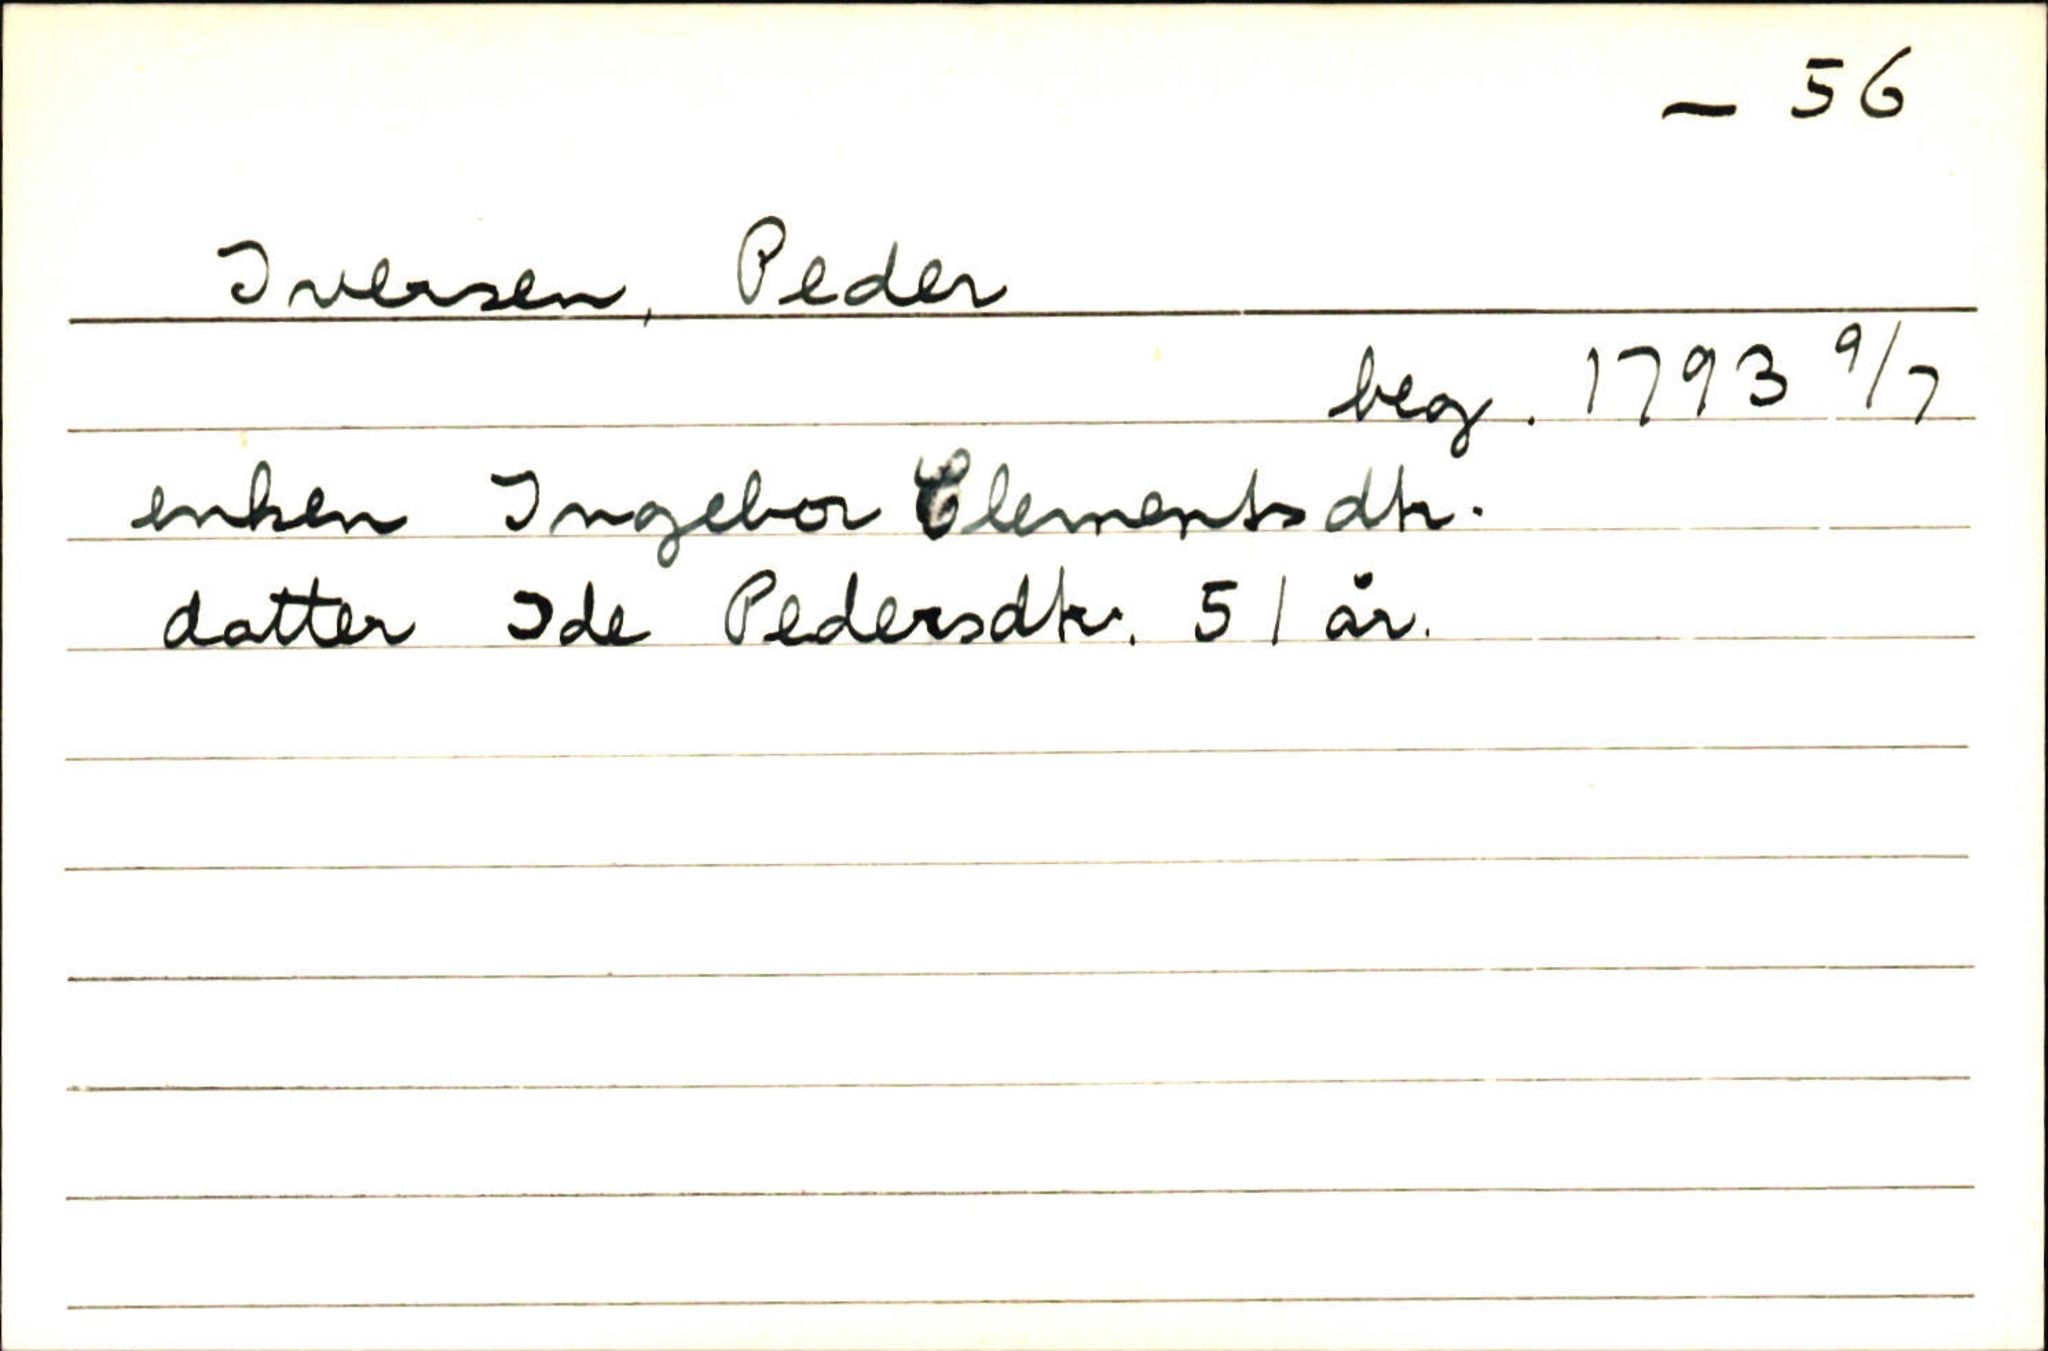 — 56
Iversen, Peder
beg. 1793 9/7
enken Ingebor Clementsdtr.
datter Ide Pedersdtr. 51 år.